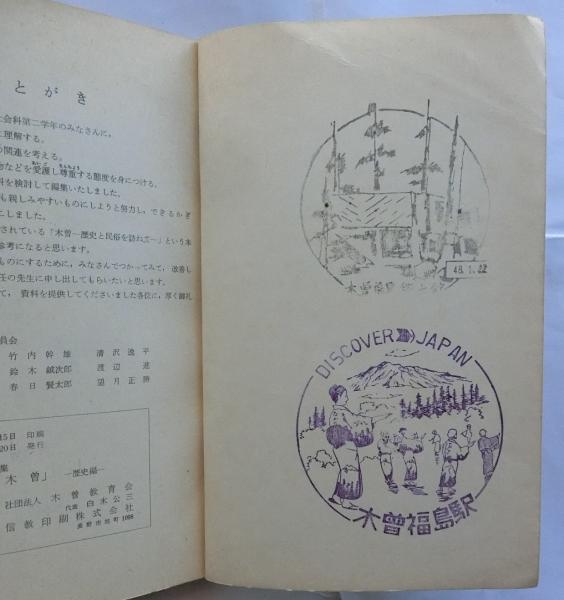 とがき
社会科第二学年のみなさんに。
に理解する。
の関連を考える。
などを愛護し尊重する態度を身につける。
料を検討して編集いたしました。
も親しみやすいものにしようと努力し、できるかぎ
にしました。
されている「木曽―歴史と民俗を訪ねて―」という本
参考になると思います。
ものにするために、みなさんでつかってみて、改善し
任の先生に申し出してもらいたいと思います。
て、資料を提供してくださいました各位に、厚く御礼
員会
竹内幹雄 清沢逸平
鈴木鉞次郎 渡辺進
春日賢太郎 望月正勝
15日 印刷
20日 発行
集
木曽」 ―歴史編―
社団法人 木曽教育会
代表 白木公三
信教印刷株式会社
長野市旭町1098
木曽福島
48.1.22
DISCOVER JAPAN
木曽福島駅